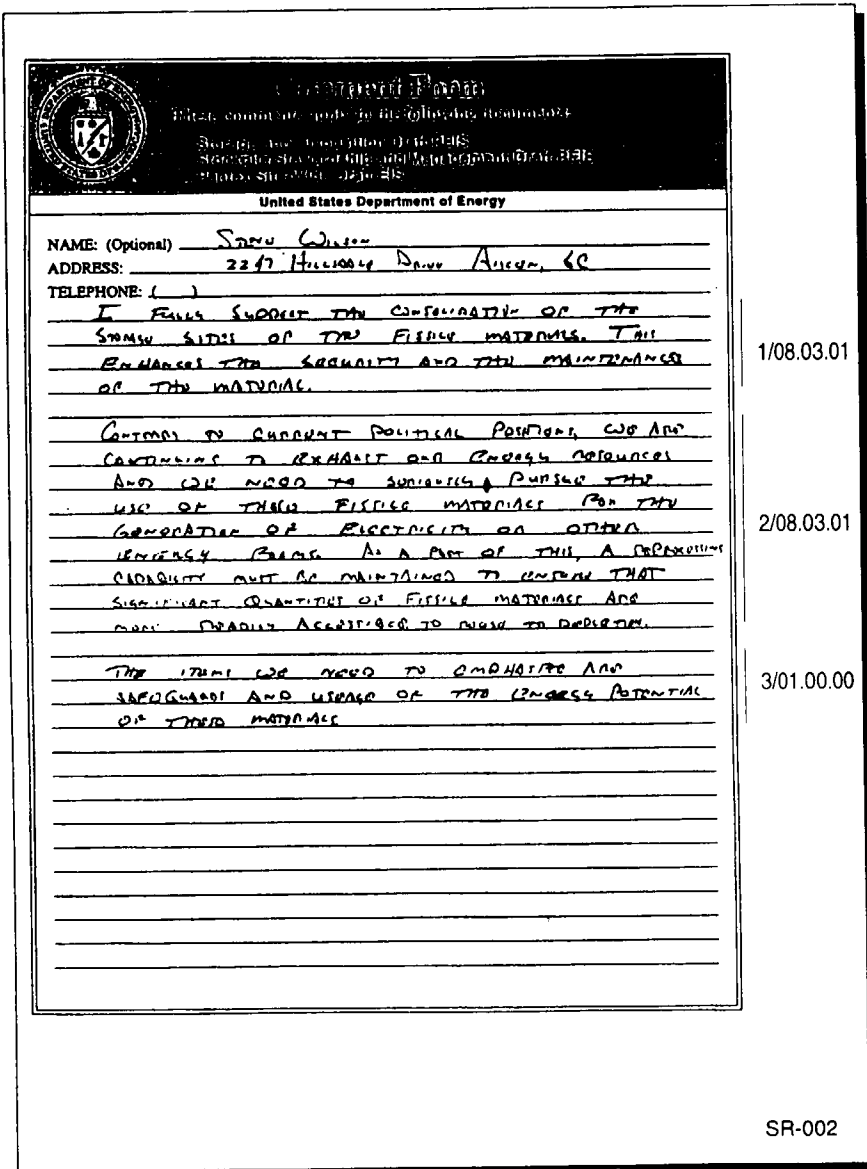 Comment Form
These comments apply to the following documents
Storage and Disposition Draft PEIS
Stockpile Stewardship and Management Draft PEIS
Pantex Sitewide Draft EIS
United States Department of Energy
NAME: (Optional) Wilson
ADDRESS: 2247 Hillsdale Drive Aiken, SC
TELEPHONE: ( )
I FULLY SUPPORT THE CONSOLIDATION OF THE
STORAGE SITES OF THE FISSILE MATERIALS. THIS
ENHANCES THE SECURITY AND THE MAINTENANCE
OF THE MATERIAL.
1/08.03.01
CONTRARY TO CURRENT POLITICAL POSITIONS, WE ARE
CONTINUING TO EXHAUST OUR ENERGY RESOURCES
AND WE NEED TO SERIOUSLY PURSUE THE
USE OF THESE FISSILE MATERIALS FOR THE
GENERATION OF ELECTRICITY OR OTHER
ENERGY FORMS. AS A PART OF THIS, A REPROCESSING
CAPABILITY MUST BE MAINTAINED TO ENSURE THAT
SIGNIFICANT QUANTITIES OF FISSILE MATERIALS ARE
MORE READILY ACCESSIBLE TO REUSE TO DEPLETION.
2/08.03.01
THE ITEMS WE NEED TO EMPHASIZE ARE
SAFEGUARDS AND USEAGE OF THE ENERGY POTENTIAL
OF THESE MATERIALS
3/01.00.00
SR-002